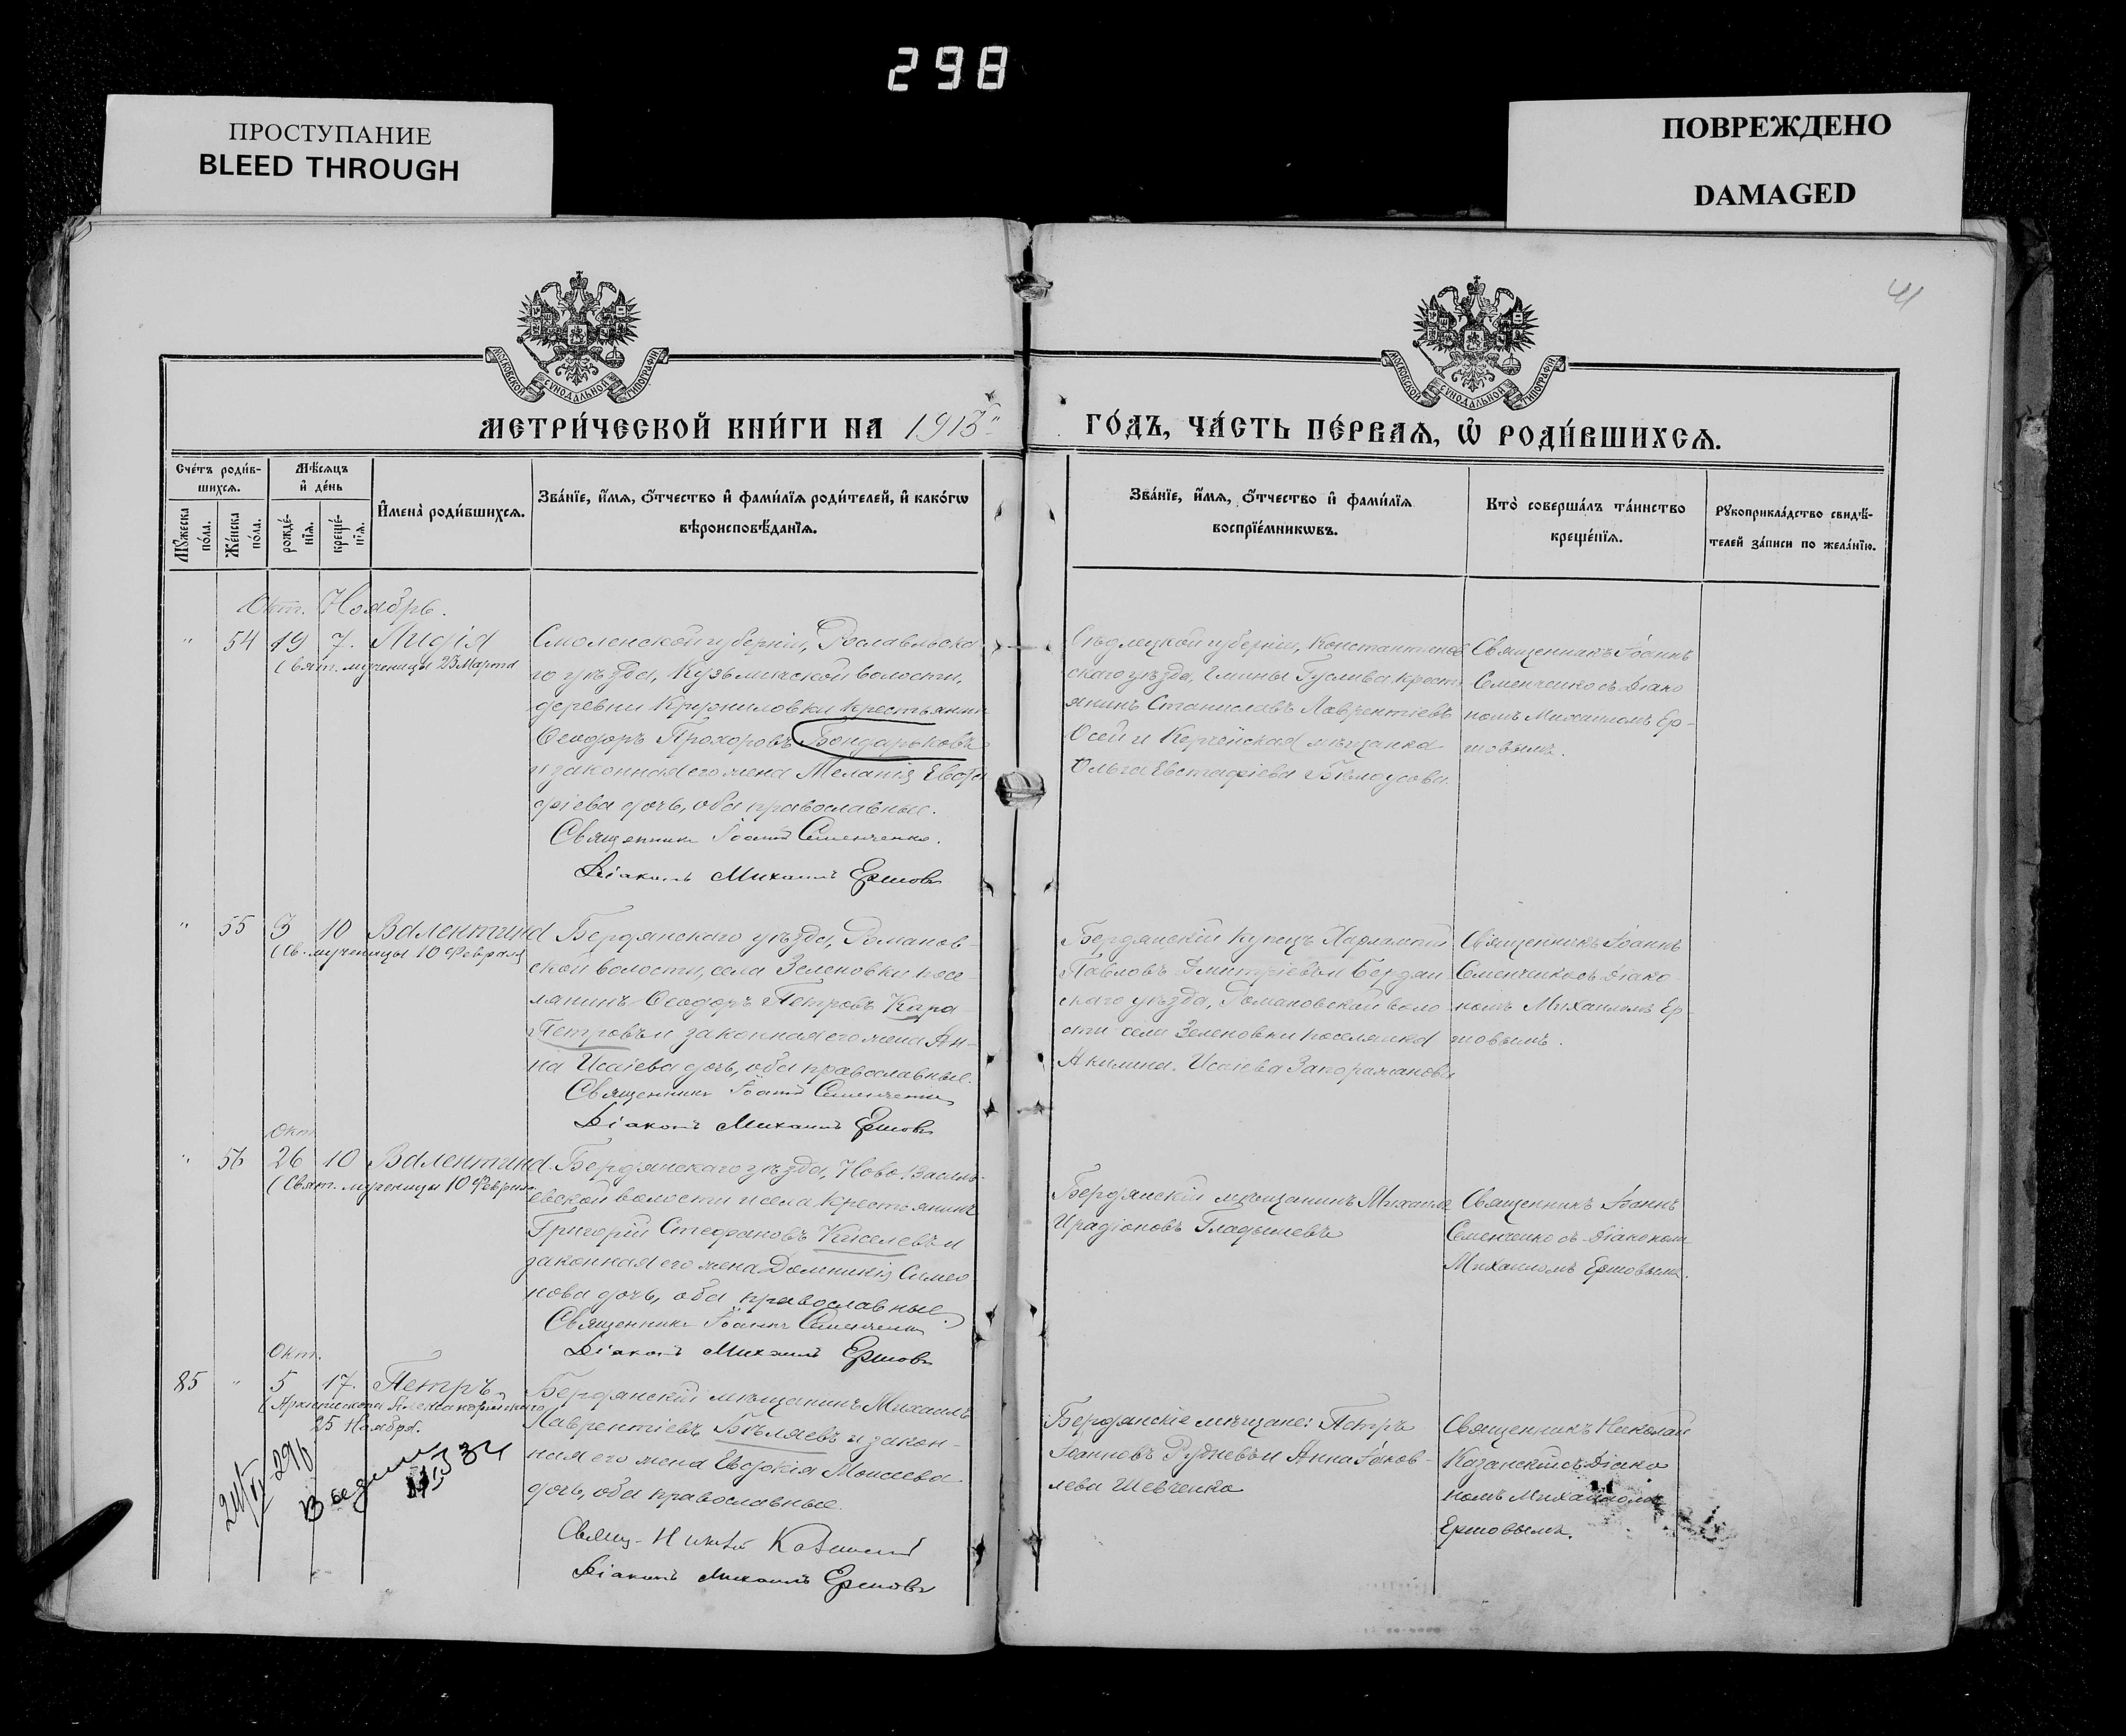 298
ПРОСТУПАНИЕ
BLEED THROUGH
ПОВРЕЖДЕНО
DAMAGED
41
МОСКОВСКОЙ СУНОДАЛЬНОЙ ТИПОГРАФІИ
МОСКОВСКОЙ СУНОДАЛЬНОЙ ТИПОГРАФІИ
МЕТРИ́ЧЕСКОЙ КНИ́ГИ НА 1913
ГО́ДЪ, ЧА́СТЬ ПЕ́РВАѦ, Ѡ҆ РОДИ́ВШИХСѦ.
Сче́тъ роди́в-
шихсѧ.
Мꙋжеска по́ла.
Же́нска по́ла.
Мѣ́сѧцъ
и҆ де́нь
рожде́-
нїѧ.
креще́-
нїѧ.
И҆мена̀ роди́вшихсѧ.
Зва́нїе, и҆́мѧ, ѻ҆́тчество и҆ фами́лїѧ роди́телей, и҆ како́гѡ
вѣроисповѣ́данїѧ.
Зва́нїе, и҆́мѧ, ѻ҆́тчество и҆ фами́лїѧ
воспрїе́мникѡвъ.
Кто̀ соверша́лъ та́инство
креще́нїѧ.
Рꙋкоприкла́дство свидѣ́-
телей за́писи по жела́нїю.
Окт. Ноябрь.
" 54 19 7. Лидія
(Свят. мученицы 23 Марта
Смоленской губерніи, Рославльска
го уѣзда, Кузьмичской волости,
деревни Криониловки крестьянинъ
Ѳеодоръ Прохоровъ Бондарьковъ
и законная его жена Меланія Евфи
міева дочь, оба православные.
Священникъ Іоаннъ Семенченко.
Діаконъ Михаилъ Ершовъ
Сѣдлецкой губерніи, Константинов
скаго уѣзда, Гмины Гуслива, крестъ
янинъ Станиславъ Лаврентіевъ
Осей и Керченская мѣщанка
Ольга Евстафіева Бѣлоусова.
Священникъ Іоаннъ
Семенченко съ Діако
номъ Михаиломъ Ер-
шовымъ.
" 55 3 10 Валентина
(Св. мученицы 10 Февраля
Бердянскаго уѣзда, Романов-
ской волости, села Зеленовки посе
лянинъ Ѳеодоръ Петровъ Кара
Петровъ и законная его жена Ан-
на Исаіева дочь, оба православные.
Священникъ Іоаннъ Семенченко
Діаконъ Михаилъ Ершовъ
Бердянскій купецъ Харлампій
Павловъ Дмитріевъ и Бердян
скаго уѣзда, Романовской воло
сти села Зеленовки поселянка
Акилина Исаіева Запорожанова
Священникъ Іоаннъ
Семенченко съ Діако-
номъ Михаиломъ Ер-
шовымъ.
Окт.
" 56 26 10 Валентина.
(Свят. мученицы 10 Февраля
Бердянскаго уѣзда, Ново Василь-
евской волости и села крестьянинъ
Григорій Стефановъ Киселевъ и
законная его жена Домникія Симео
нова дочь, оба православные.
Священникъ Іоаннъ Семенченко
Діаконъ Михаилъ Ершовъ
Бердянскій мѣщанинъ Михаилъ
Иродіоновъ Гладышевъ
Священникъ Іоаннъ
Семенченко съ Діакономъ
Михаиломъ Ершовымъ.
Окт.
85 " 5 17. Петръ
(Архіепископа Александрійскаго,
25 Ноября.
Бердянскій мѣщанинъ Михаилъ
Лаврентіевъ Бѣляевъ и закон-
ная его жена Евдокія Моисеева
дочь, оба православные.
Свящ. Казанскій
Діаконъ Михаилъ Ершовъ
Бердянскіе мѣщане: Петръ
Іоанновъ Рудневъ и Анна Іаков-
лева Шевченко
Священникъ Николай
Казанскій съ Діако
номъ Михаиломъ
Ершовымъ.